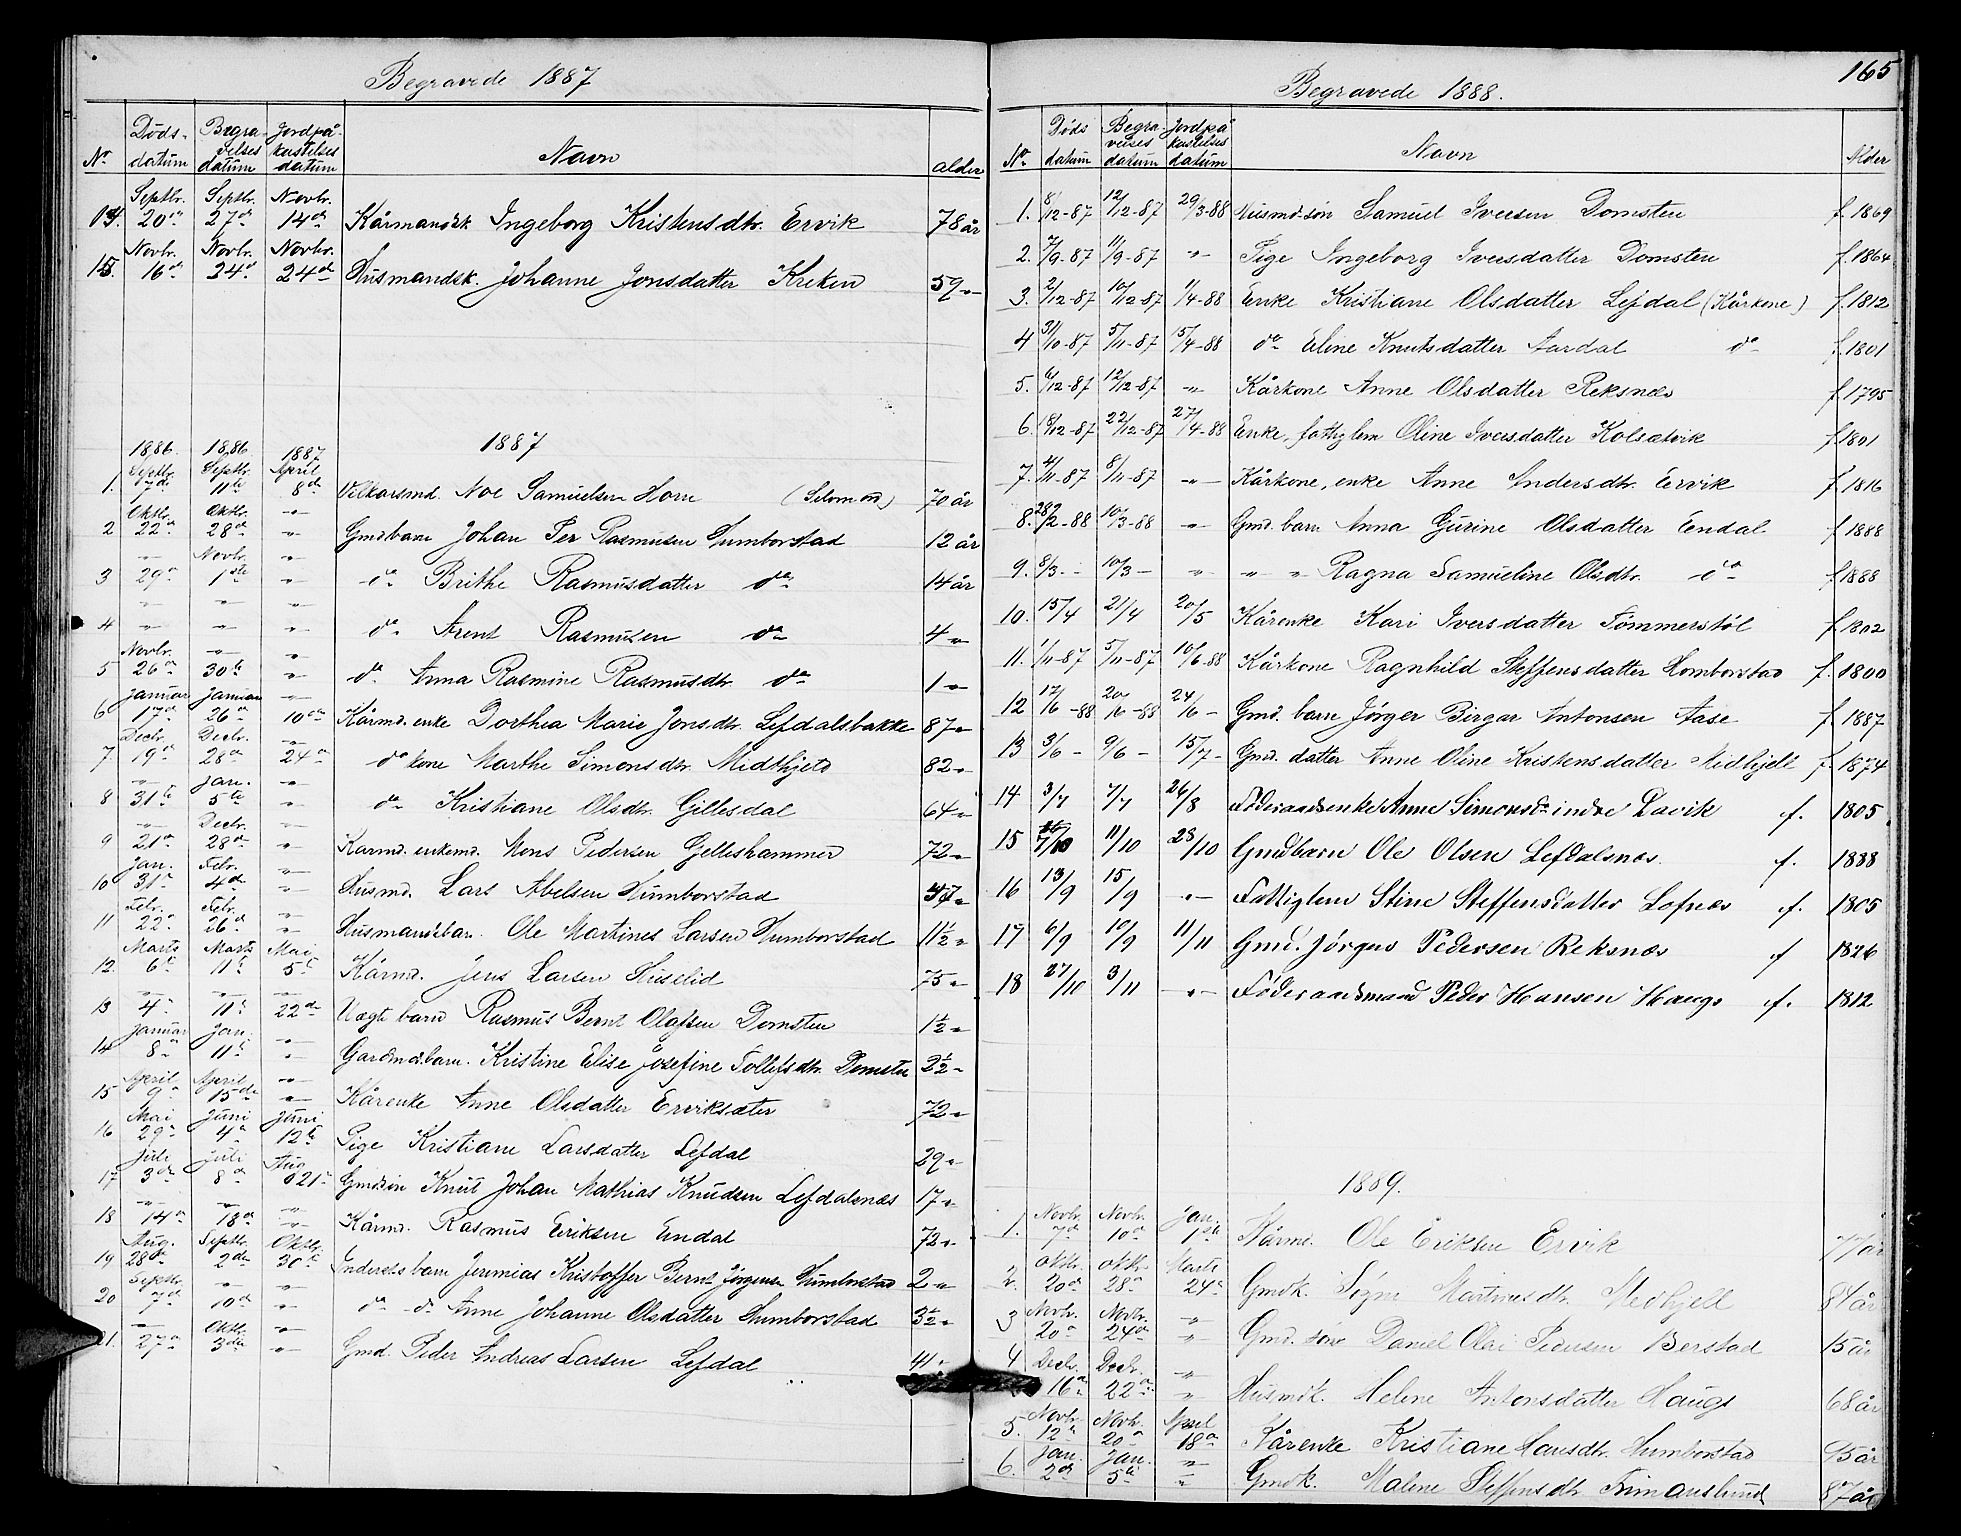 Begravede 1887
No Døds- datum Begra- velses datum Jordpå- kastelses datum Navn alder
14. Septbr. 20de Septbr. 27de Novbr. 14de Kårmandsk Ingeborg Kristensdtr. Ervik 78 år
15. Novbr. 16de Novbr. 24de Novbr. 24de Husmandsk. Johanne Jonsdatter Kreken 59 "
1886. 1886. 1887 1887
1. Septbr. 7de Septbr. 11te April 8de Vilkårsmd. Noe Samuelsen Horn 70 år
2 Oktbr. 22de Oktbr. 28de " Gmdbarn Johan Per Rasmusen Humborstad 12 år
3 " 29de Novbr. 1ste " do Brithe Rasmusdatter do 14 år
4 " " " do Arent Rasmusen do 4 "
5 Novbr. 26de " 30te " do Anna Rasmine Rasmusdtr. do 1 "
6 Januar 17de Januar 26de " 10de Kårmd. enke Dorthea Marie Jonsdtr. Lefdalsbakke 87 "
7. Decbr. 19de Decbr. 28de " 24de do kone Marthe Simonsdtr. Midthjeld 82 "
8 " 31te Jan. 5te " do Kristiane Olsdtr. Gillesdal 64 "
9 " 21de Decbr. 28de " Kårmd. enkemd. Mons Pedersen Gilleshammer 72 "
10 Jan. 31te Febr. 4de " Husmd. Lars Abelsen Humborstad
11 Febr. 22de Febr. 26de " Husmandsbarn. Ole Martines Larsen Humborstad 11½ "
12. Marts 6te Marts 11te Mai 5te Kårmd. Jens Larsen Huselid 75 "
13 " 4de " 11te " 22de Uægte barn Rasmus Bernt Olafsen Domsten 1½ "
14 Januar 8de Jan. 11te " Gardmd.barn. Kristine Elise Josefine Tollefsdtr. Domsten 2½ "
15 April 9de April 15de " Kårenke Anne Olsdatter Erviksæter 72 "
16 Mai 29de Juni 4de Juni 12te Pige Kristiane Larsdatter Lefdal 29 "
17 Juli 3de Juli 8de Aug 21de Gmdsøn Knut Johan Mathias Knudsen Lefdalsnæs 17 "
18 " 14de " 18de " Kårmd. Rasmus Eriksen Endal 72 "
19 Aug. 28de Septbr. 2den Oktbr. 30te Inderstsbarn Jeremias Kristoffer Bernt Jørgensen Humborstad 2 "
20 Septbr. 7de " 10de " do do Anne Johanne Olsdatter Humborstad 3½ "
21. " 27de Oktbr. 3die " Gmd. Peder Andreas Larsen Lefdal 41 "
165
Begravede 1888.
No Døds datum Begra- velses datum Jordpå kastelses datum Navn Alder
1. 8/12-87 12/12-87 29/3-88 Husmd.søn Samuel Iversen Domsten f. 1869
2. 7/9-87 11/9-87 " Pige Ingeborg Iversdatter Domsten f. 1864
3. 2/12-87 10/12-87 1/4-88 Enke Kristiane Olsdatter Lefdal (Kårkone) f. 1812
4 31/10-87 5/11-87 15/4-88 do Eline Knutsdatter Aardal do f. 1801
5. 6/12-87 12/12-87 " Kårkone Anne Olsdatter Reksnæs f. 1795
6. 18/12-87 22/12-87 27/4-88 Enke, fattiglem Oline Iversdatter Kolsætvik f. 1801
7. 4/11-87 8/11-87 " Kårkone, enke Anne Andersdtr. Ervik f. 1816
8. 28/2-88 10/3-88 " Gmd. barn Anna Gurine Olsdatter Endal f. 1888
9. 8/3 - 10/3 - " " " Ragna Samueline Olsdtr. do f. 1888
10. 15/4 21/4 20/5 Kårenke Kari Iversdatter Tømmerstøl f. 1802
11. 1/11-87 5/11-87 10/6-88 Kårkone Ragnhild Steffensdatter Homborstad f. 1800
12 12/6-88 20/6-88 24/6 - Gmd. barn Jørger Birgar Antonsen Aase f. 1887
13 3/6 - 9/6 - 15/7 - Gmd. datter Anne Oline Kristensdatter Midhjell f. 1874
14 3/7 7/7 26/8 Føderaadsenke Anne Simonsdr indre Davik f. 1805
15 7/10 11/10 28/10 Gmdbarn Ole Olsen Lefdalsnæs. f. 1888
16 13/9 15/9 " Fattiglem Stine Steffensdatter Lofnæs f. 1805
17 6/9 10/9 11/11 Gmd. Jørgen Pedersen Reksnæs f 1826
18 27/10 3/11 " Føderaadsmand Peder Hansen Haugs f. 1812
1889.
1. Novbr. 7de Novbr. 10de Jan. 1ste Kårmd. Ole Eriksen Ervik 77 år
2. Oktbr. 20de Oktbr. 28de Marts 24de Gmdk. Signe Martinusdtr. Medhjell 84 år
3 Novbr. 20de Novbr. 24de " Gmd. søn Daniel Olai Pedersen Berstad 15 år
4 Decbr. 16de Decbr. 22de " Husmdk. Helene Antonsdatter Haugs 68 år
5. Novbr. 12te Novbr. 20de April 18de Kårenke Kristiane Hansdtr. Humborstad 95 år
6. Jan. 2den Jan. 5te " Gmdk. Malene Steffensdtr. 87 år